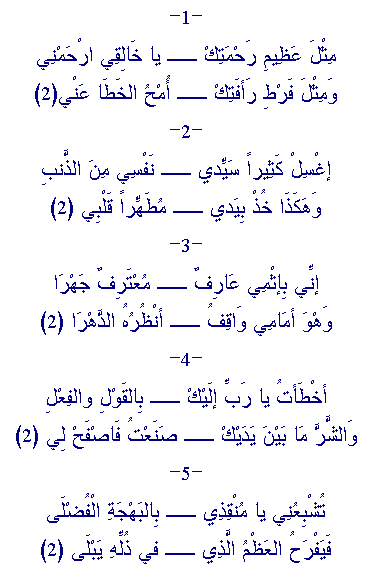 -1-
مِثْلَ عَظِيمِ رَحْمَتِكْ ــــ يا خَالِقِي ارْحَمْنِي
وَمِثْلَ فَرْطِ رَأفَتِكْ ــــ أُمْحُ الخَطَا عَنْي(2)
-2-
إغْسِلْ كَثِيراً سَيِّدي ــــ نَفْسِي مِنَ الذَّنبِ
وَهَكَذَا خُذْ بِيَدي ــــ مُطَهِّراً قَلْبِي (2)
-3-
إنِّي بِإثْمِي عَارِفٌ ــــ مُعْتَرِفٌ جَهْرَا
وَهْوَ أمَامِي وَاقِفُ ــــ أنْظُرُهُ الدَّهْرَا (2)
-4-
أخْطَأتُ يا رَبِّ إلَيْكْ ــــ بِالقَوْلِ والفِعْلِ
وَالشَّرَّ مَا بَيْنَ يَدَيْكْ ــــ صَنَعْتُ فَاصْفَحْ لِي (2)
-5-
تُشْبِعُنِي يا مُنْقِذِي ــــ بِالبَهْجَةِ الْفُضْلَى
فَيَفْرَحُ العَظْمُ الَّذِي ــــ في ذُلِّهِ يَبْلَى (2)